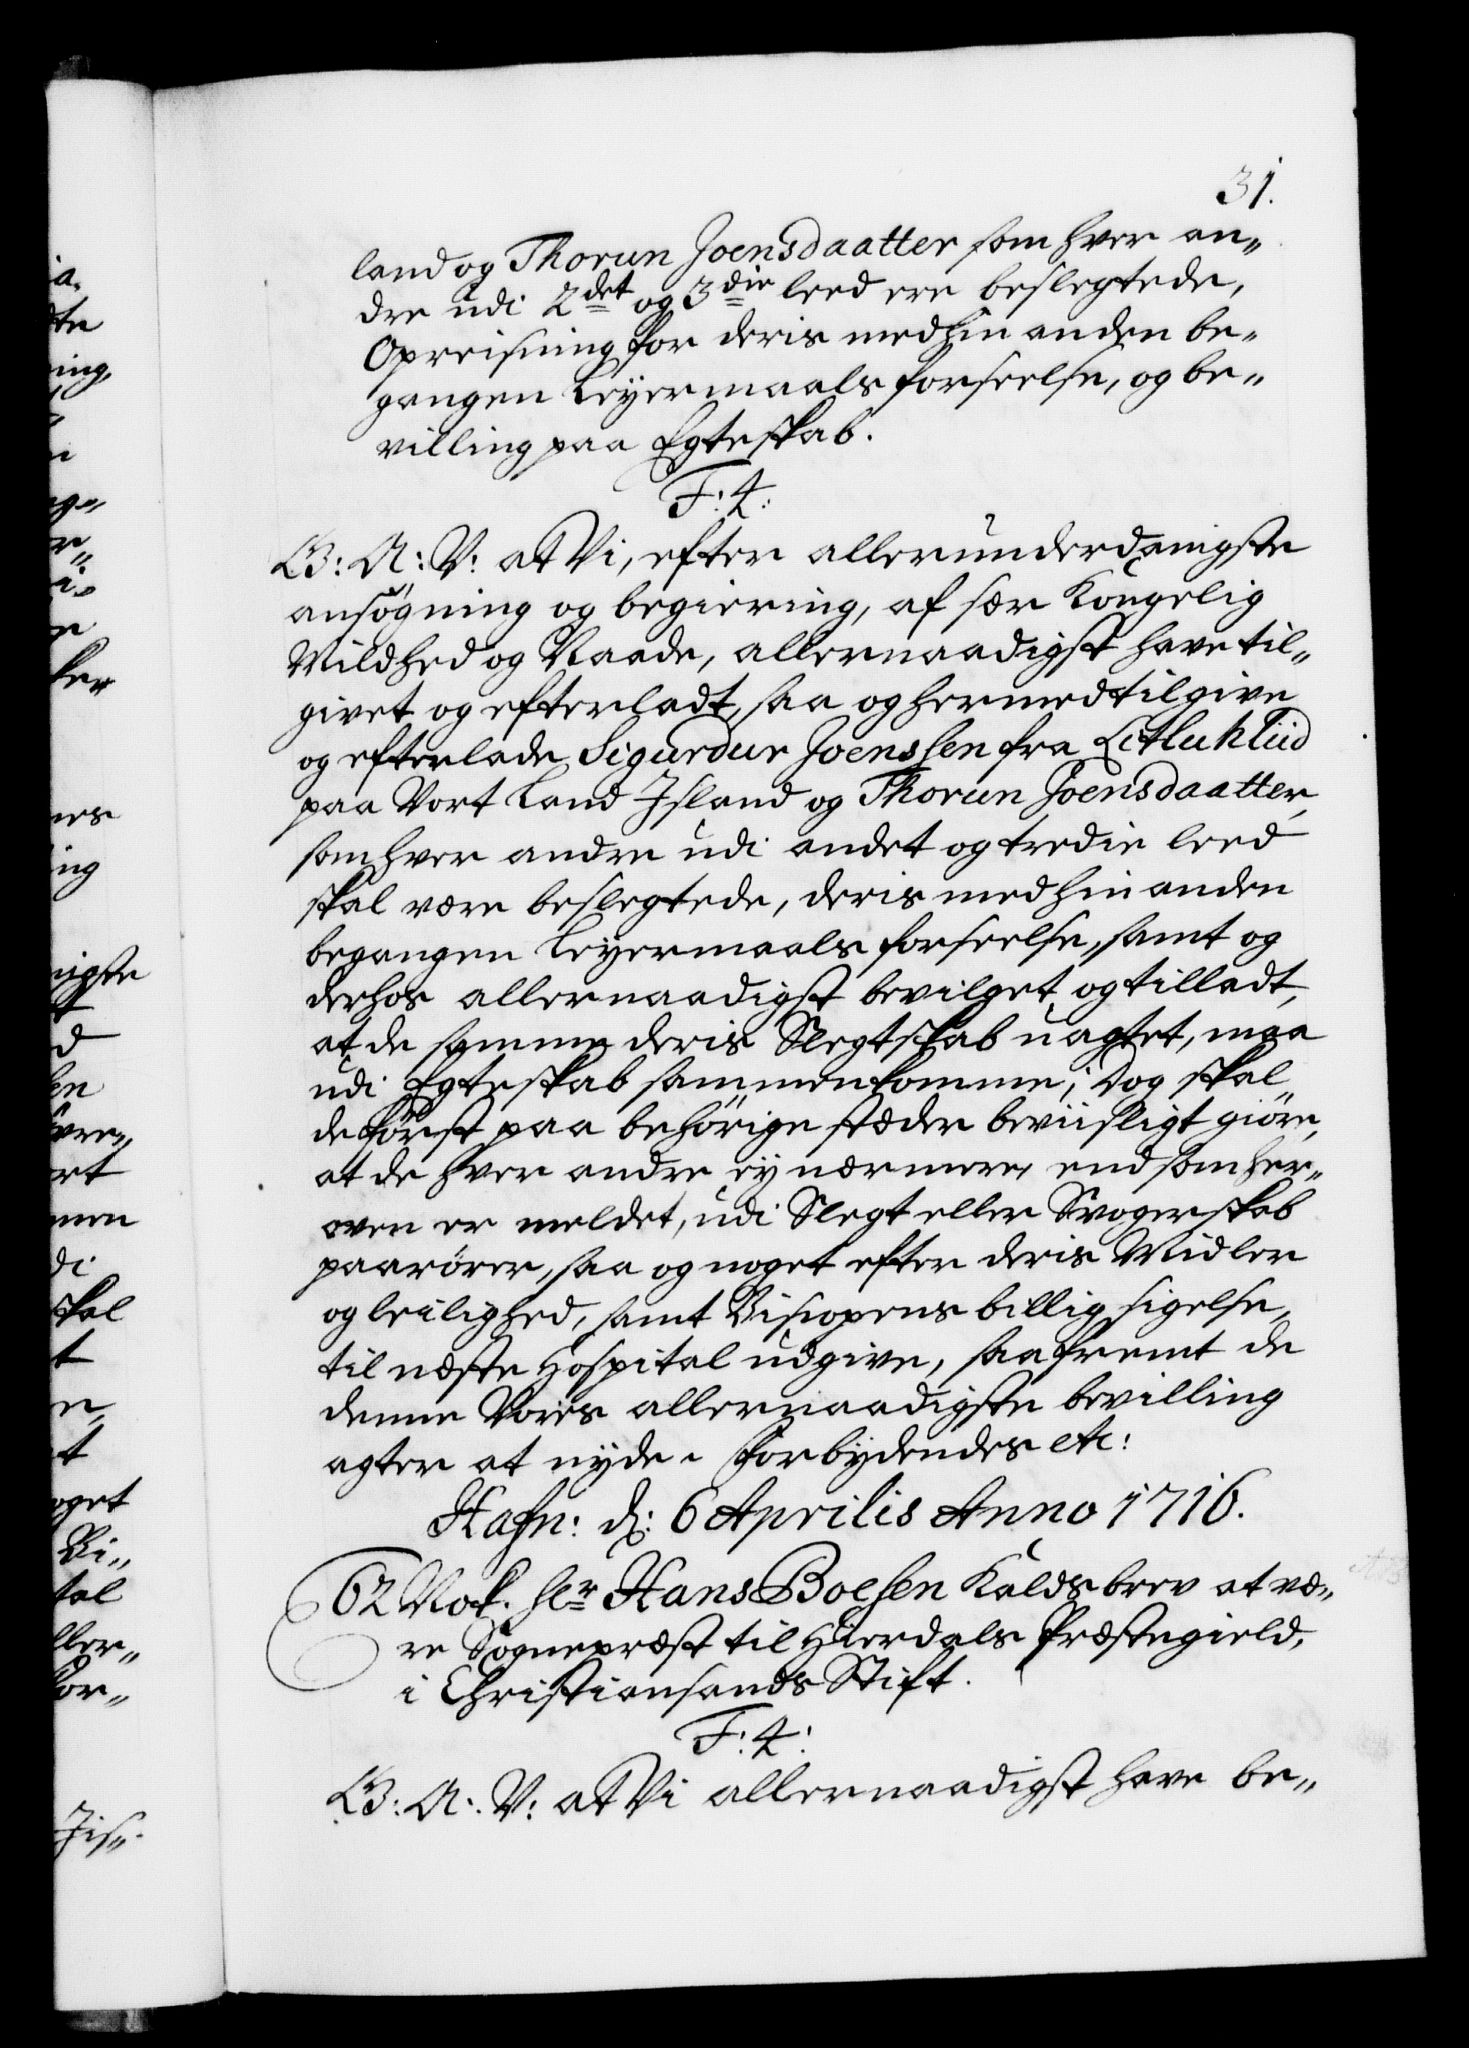 31.
land og Thorun Joensdaatter som hver an„
dre udi 2det og 3die leed ere beslegtede,
Opreisning for deris med hin anden be„
gangen Leyermaals forseelse, og be„
villing paa Egteskab.
F: 4:
G: A: V: at Vi, efter allerunderdanigste
ansøgning og begiering, af sær Kongelig
Mildhed og Naade, allernaadigst have til„
givet og efterladt, saa og hermed tilgive
og efterlade Sigurdur Joenssen fra
paa Vort Land Island og Thorun Joensdaatter,
som hver andre udi andet og tredie leed
skal være beslegtede, deris med hin anden
begangen Leyermaals forseelse, samt og
derhos allernaadigst bevilget og tilladt,
at de samme deris Slegtskab uagtet, maa
udi Egteskab sammenkomme; Dog skal
de først paa behörige stæder beviisligt giöre,
at de hver andre ey nærmere, end som her„
oven er meldet, udi Slegt eller Svogerskab
paarörer, saa og noget efter deris Midler
og leilighed, samt Biscopens billig sigelse,
til næste Hospital udgive, saafremt de
denne Vores allernaadigste bevilling
agter at nyde. Forbydendes etc:
Hafn: d: 6 Aprilis Anno 1716.
62 Nok. Hr Hans Boesen Kaldsbrev at væ„
re Sognepræst til Hierdals Præstegield,
i Christiansands Stift.
F: 4:
G: A: V: at Vi allernaadigst have be„